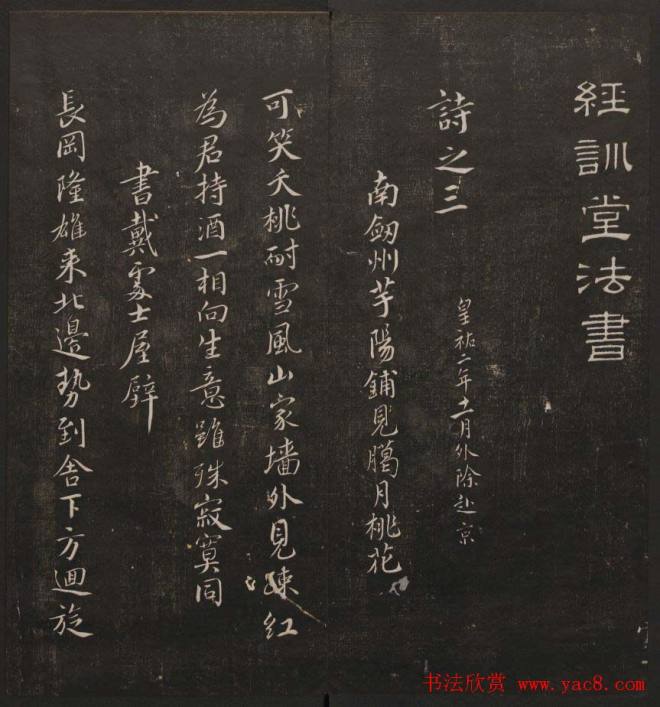 經訓堂法書
詩之三
皇祐二年十一月外除赴京
南劒州芋陽鋪見臈月桃花
可笑夭桃耐雪風山家墙外見踈紅
為君持酒一相向生意雖殊寂寞同
書戴處士屋壁
長岡隆雄来北邊勢到舍下方迴旋
书法欣赏 www.yac8.com